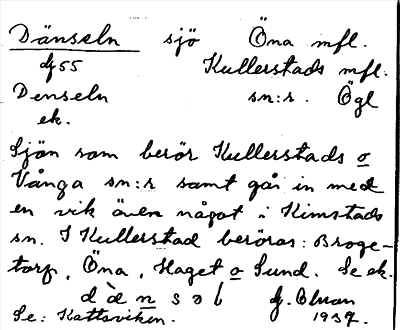 Dänseln sjö Öna mfl.
dj 55 Kullerstads mfl.
Denseln sn:s. Ögl
ek.
Sjön som berör Kullerstads o
Vånga sn:r samt går in med
en vik även något i Kimstads
sn. I Kullerstad beröras: Broge-
torp, Öna, Haget o Sund. Se ek.
1937.
Se: Kattsviken.